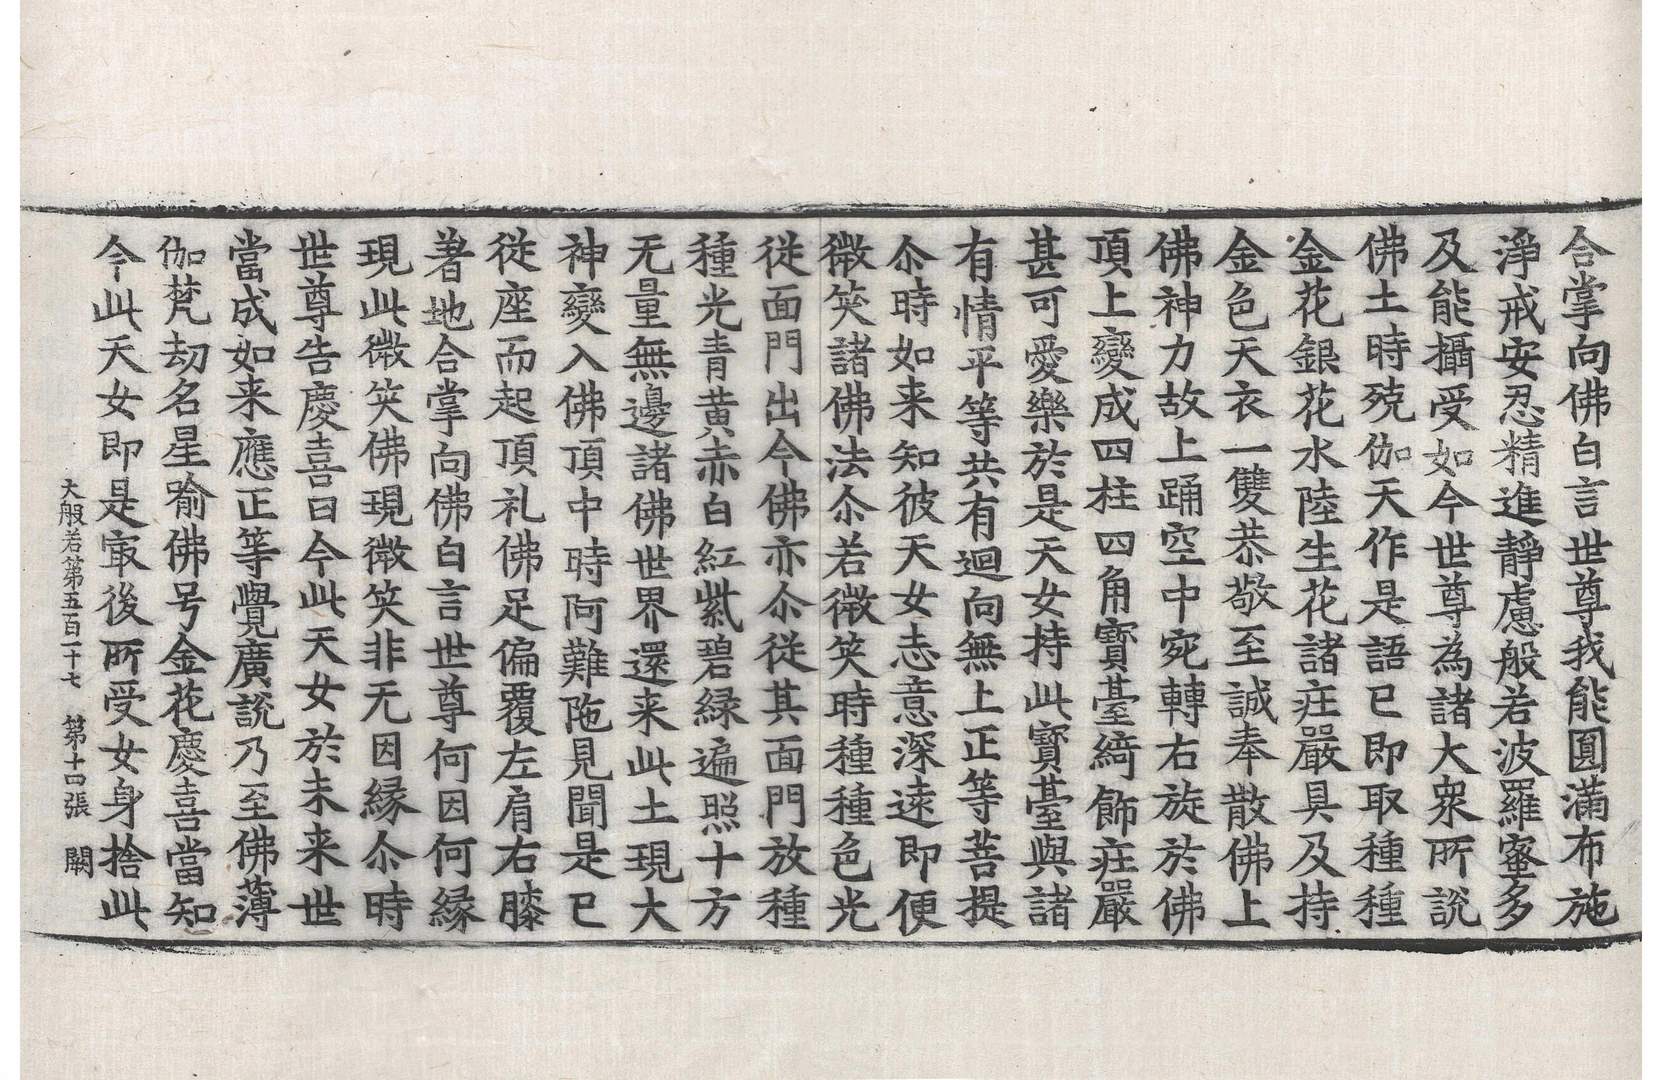 合掌向佛白言世尊我能圓滿布施
淨戒安忍精進靜慮般若波羅蜜多
及能攝受如今世尊為諸大衆所說
佛土時殑伽天作是語已即取種種
金花銀花水陸生花諸庄嚴具及持
金色天衣一雙恭敬至誠奉散佛上
佛神力故上踊空中宛轉右旋於佛
頂上變成四柱四角寶臺綺飾庄嚴
甚可愛樂於是天女持此寶臺與諸
有情平等共有迴向無上正等菩提
尒時如来知彼天女志意深遠即便
微笑諸佛法尒若微笑時種種色光
從面門出今佛亦尒從其面門放種
種光青黄赤白紅紫碧緑遍照十方
无量無邊諸佛世界還来此土現大
神變入佛頂中時阿難陁見聞是已
從座而起頂礼佛足偏覆左肩右膝
著地合掌向佛白言世尊何因何縁
現此微笑佛現微笑非无因縁尒時
世尊告慶喜曰今此天女於未来世
當成如来應正等覺廣說乃至佛薄
伽梵劫名星喻佛号金花慶喜當知
今此天女即是㝡後所受女身捨此
大般若第五百一十七　第十四張　闕